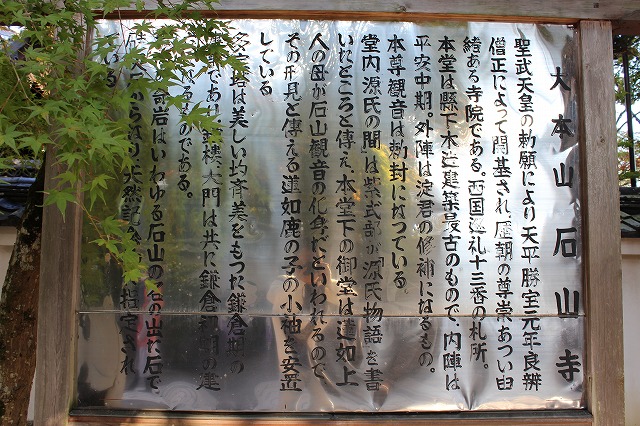 大本山 石山寺
聖武天皇の勅願により 天平勝宝元年良辨
僧正によって開基され、歴朝の尊崇あつい由
緒ある寺院である。西国巡礼十三番の札所。
本堂は縣下木造建築最古のもので、内陣は
平安中期。外陣は淀君の修補になるもの。
本尊観音は勅封になっている
堂内 源氏の間は紫式部が源氏物語を書
いたところと傳え 本堂下の御堂は蓮如上
人の母が石山観音の化身だといわれるので
その形見と傳える蓮如鹿の子の小袖を安置
している
多宝塔は美しい均斉美をもった鎌倉期の
であり 鐘楼、大門は共に鎌倉初期の建
るものである。
奇岩はいわゆる石山の名の出た石で
から成り、天然記念 指定され
いる